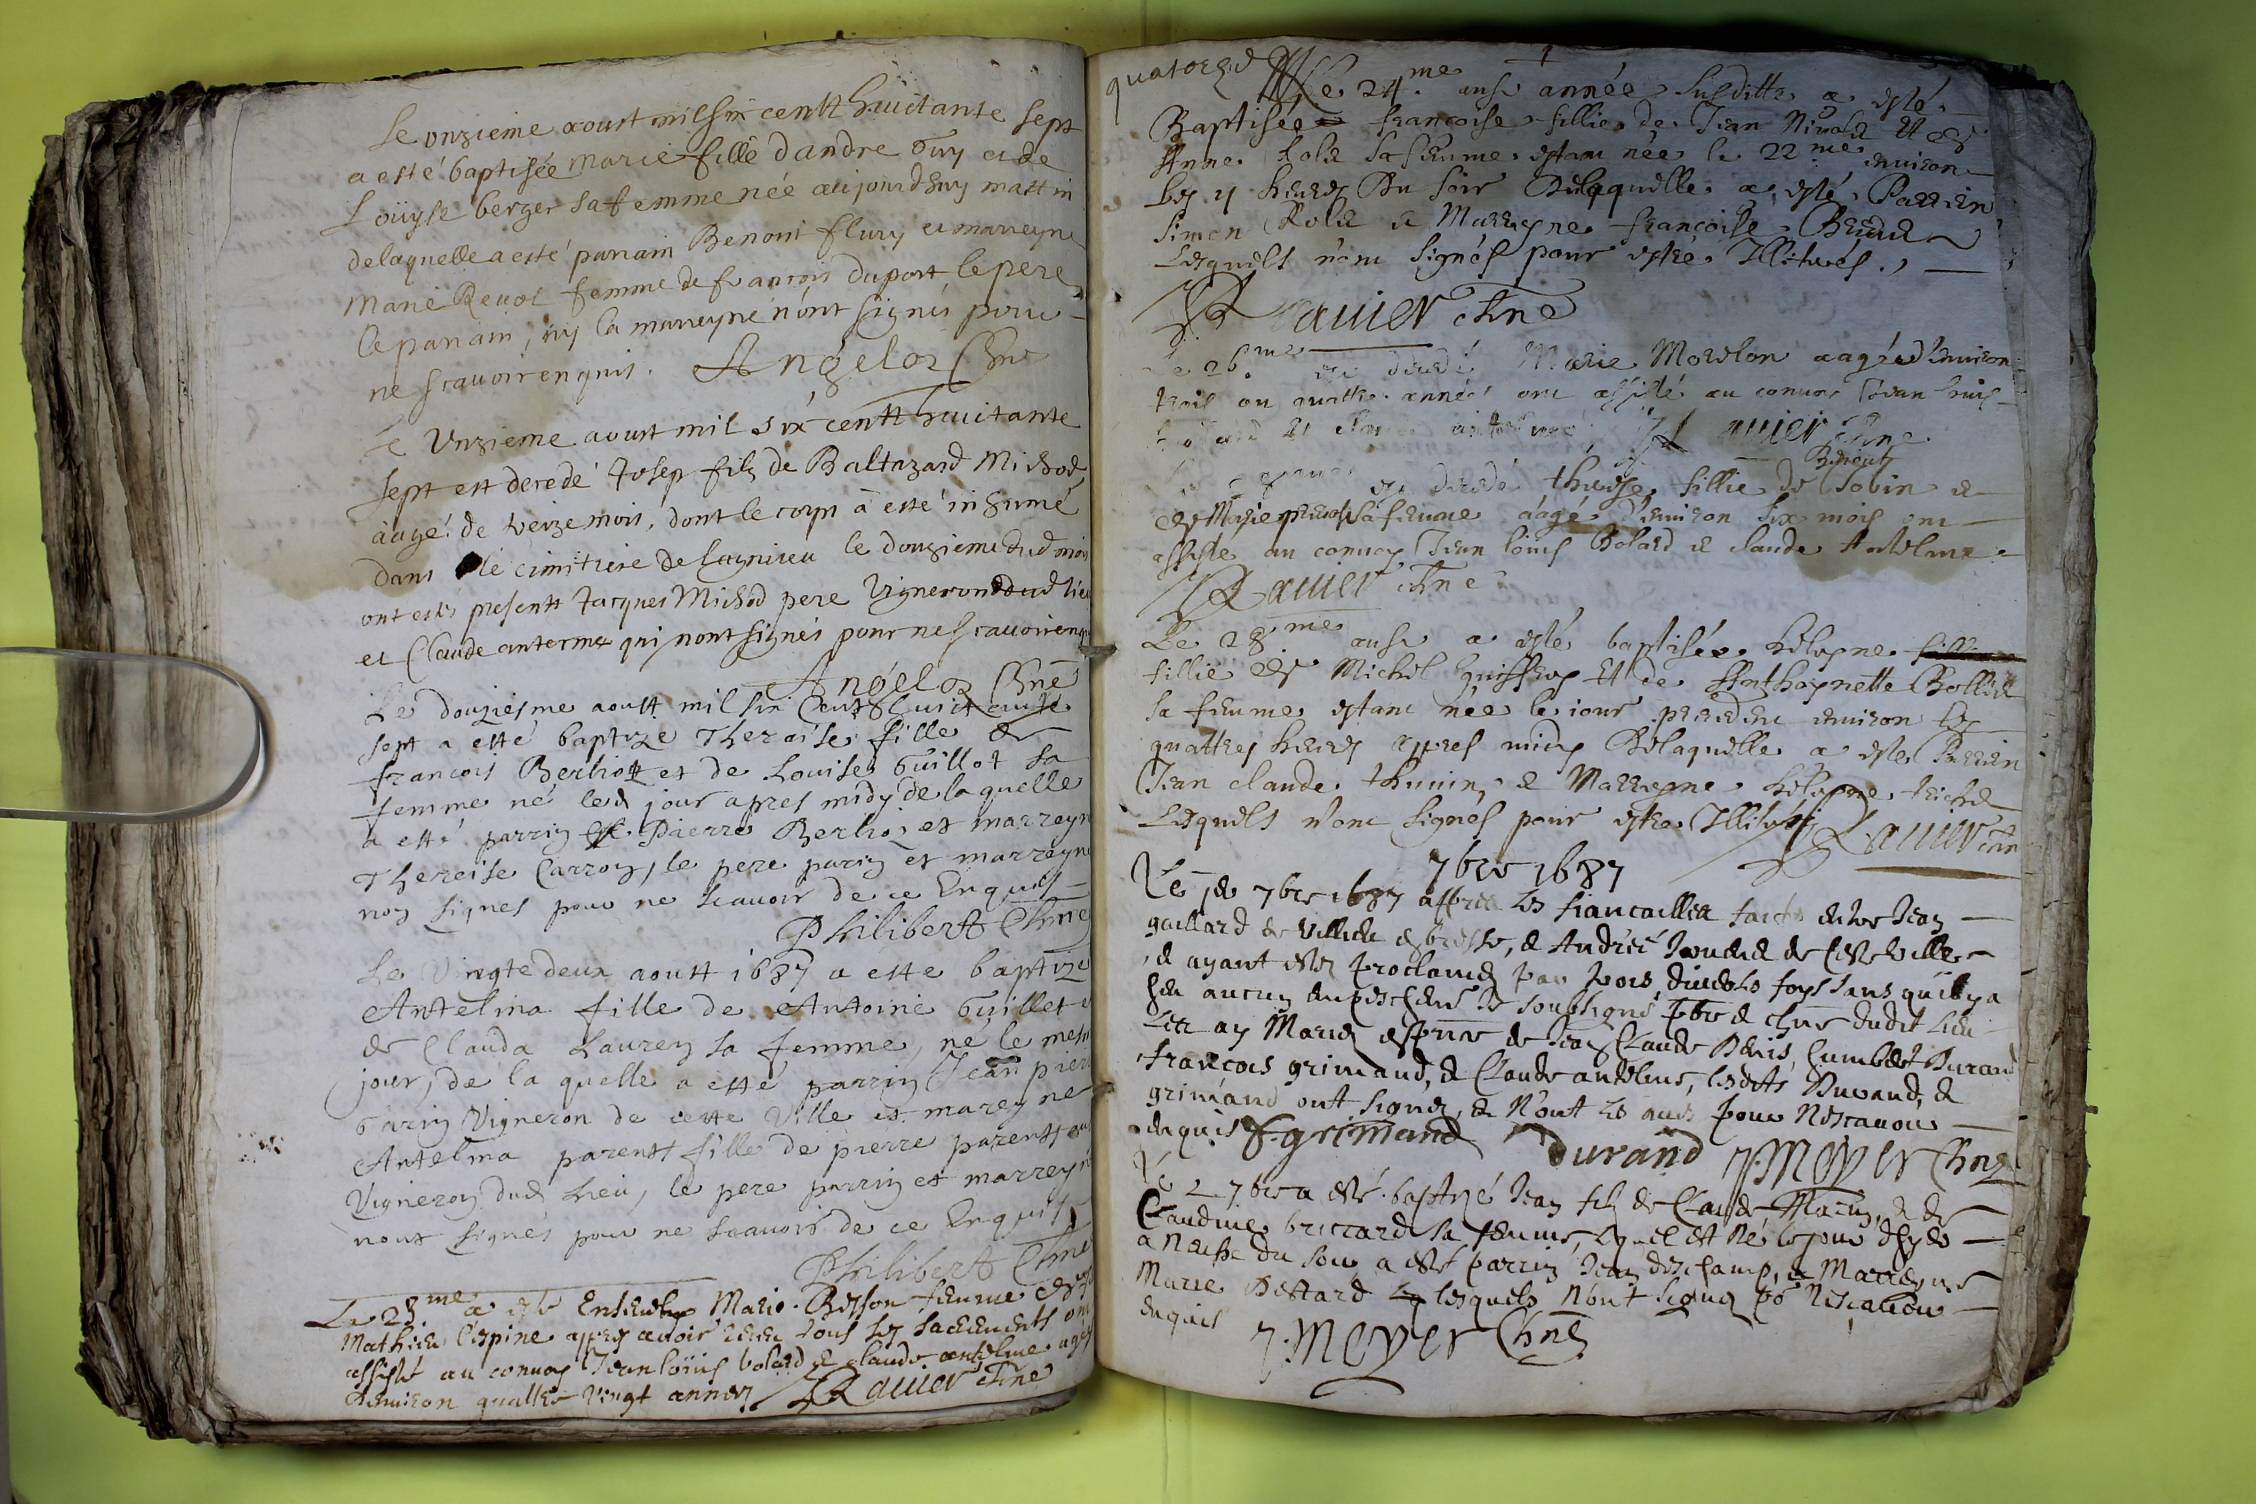 Le unzieme aoust mil six centt huictante sept
a esté baptisée Marie fille d'andre Guy et de
Loüyse berger sa femme née aujourd'huy mattin
de laquelle a esté parrain Benoni flury et marreyne
Marie Revol femme de françois Duport le pere
le parrain, ny la marreyne n'ont signés pour
ne scavoir enquis. Angelos Chne
Le Unzieme aoust mil six centt huictante
sept est decedé Josep fils de Baltazard Michod
aagé de treize mois, dont le corps a esté inhumé
dans le cimitiere de Lagnieu le douzieme dud mois
ont estés presentt Jacques Michod pere Vigneron dud lieu
et Claude antermet qui n'ont signés pour ne scavoir enquis
Angelos Chne
Le douziesme aoust mil six Centt huict ante
sept a esté baptize Theraise fille de
françois Berliott et de Louise Guillot sa
femme né led jour apres midy de la quelle
a esté parrin Pierre Berliot et marreyne
Thereise Carron, le pere parrin et marreyne
non signes pour ne scavoir de ce Enquis
Philibert Chne
Le Vingte deux aoust 1687 a este baptize
Antelina fille de Antoine Guillet et
de Clauda Lauren sa femme, né le mesme
jour, de la quelle a esté parrin Jean pierre
Garin Vigneron de cette Ville et mareyne
Antelina parentt fille de pierre parentt
Vigneron dud Lieu, le pere parrin et marreyne
nont signés pour ne scavoir de ce Enquis
Philibert Chne
Le 23.me a esté Marie Besson femme de
Mathieu l'espine apres avoir receu tous les sacrements ont
assisté au convoy Jean loüis bolard et claude antelme agée
d'environ quattre vingt années Ravier chne
quatorze
Le 24.me aust année susditte a esté
Baptisée francoise fillie de Jean et de
Anne Role sa femme estant née le 22me environ
les heures Du soir De laquelle a esté Parrin
Simon Role et Marreyne francoise
Lesquels n'ont signés pour estre Illiterés.
Ravier chne
Le 26.me est decedé Marie Morelon aagée d'environ
trois ou quattre années ont assisté au convoy Jean louis
Ravier chne
est decedé therese fillie de Robin
de Marie sa femme aagé d'environ six mois ont
assisté au convoy Jean loüis Bolard et claude Antelme
Ravier chne
Le 28me aust a esté baptisée
fillie de Michel et de Anthoynette
sa femme estant née le jour precedent environ les
quattres heures apres midy De laquelle a esté Parrin
Jean claude thenin, et Marreyne
Lesquels n'ont signés pour estre Illiterés Ravier chne
7bre 1687
Le 7bre 1687 appres les fiancailles faictes entre Jean
gaillard de et Andrée de Ceste Ville
et ayant estes proclamés par trois divers foys sans quil y a
heu aucun empeschemt Je soubsigné pbre et chne dudit Lieu
Les ay Mariés presence de Jean Claude Denis, Cumbert Durand
francois grimand, et Claude antelme, lesdits Durand, et
grimand ont signés, et n'ont les autres pour Ne scavoir
enquis F grimand Durand J. Moyer Chne
Le 2 7bre a esté baptizé Jean fils de Claude et de
Claudine briccard sa femme, lequel est né le jour d'hyer
a neuf h du soir a esté parrin Jean deschamp, et Marreyne
Marie Destard lesquels n'ont signés po Ne scavoir
enquis J. Moyer Chne